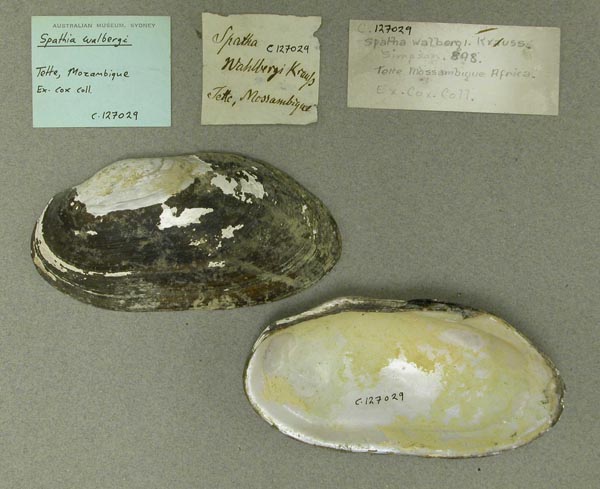 AUSTRALIAN MUSEUM, SYDNEY
Spathia walbergi
Tette, Mozambique
Ex. Cox Coll.
C.127029
Spatha
C127029
Wahlbergi Krauss
Tette, Mossambique
C.127029
Spatha walbergi. Krauss.
Simpson. 898.
Tette Mossambique Africa.
Ex. Cox. Coll.
C.127029